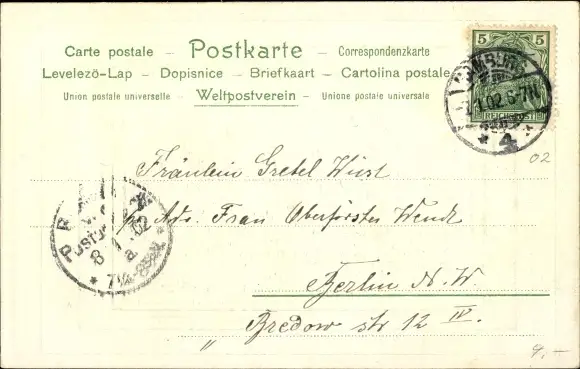 Carte postale – Postkarte – Correspondenzkarte
Levelezö-Lap – Dopisnice – Briefkaart – Cartolina postale
Union postale universelle – Weltpostverein – Unione postale universale
5 5
REICHSPOST
HAMBURG
1.02 6-7N
* 4 *
02
Fräulein Gretel Wüst
p. Adr. Frau Oberförster Wendt
Berlin N.W.
Bredow str 12 IV.
8 1 02
a.
* 7¼-8½V.
9,-